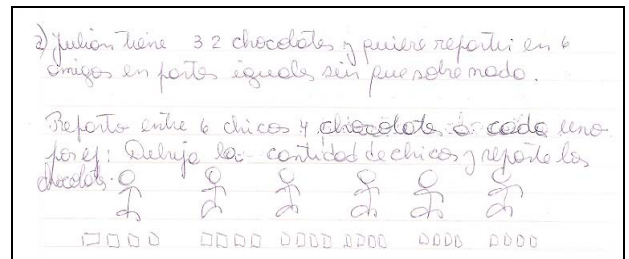 2) Julián tiene 32 chocolates y quiere repartir en 6
amigos en partes iguales sin que sobre nada.
Reparto entre 6 chicos 4 chocolates a cada uno
por ej: Dibujo la cantidad de chicos y reparto los
chocolates.